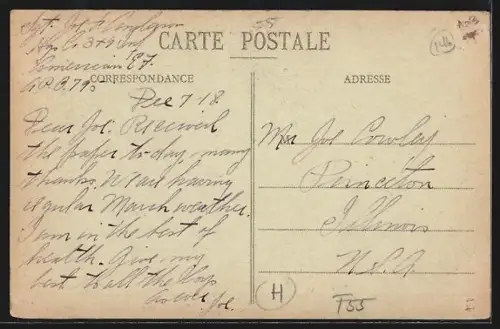 Sgt. Jos. F.
Co. 349 Inf
American E.F.
A.P.O. 795
58
CARTE POSTALE
CORRESPONDANCE
ADRESSE
Dec 7-18.
Dear Joe. Received
the paper to-day, many
thanks. We are having
regular March weather.
I am in the best of
health. Give my
best to all the
As ever
Joe.
Mr Joe Cowley
Princeton
Illinois
U.S.A.
H
T55